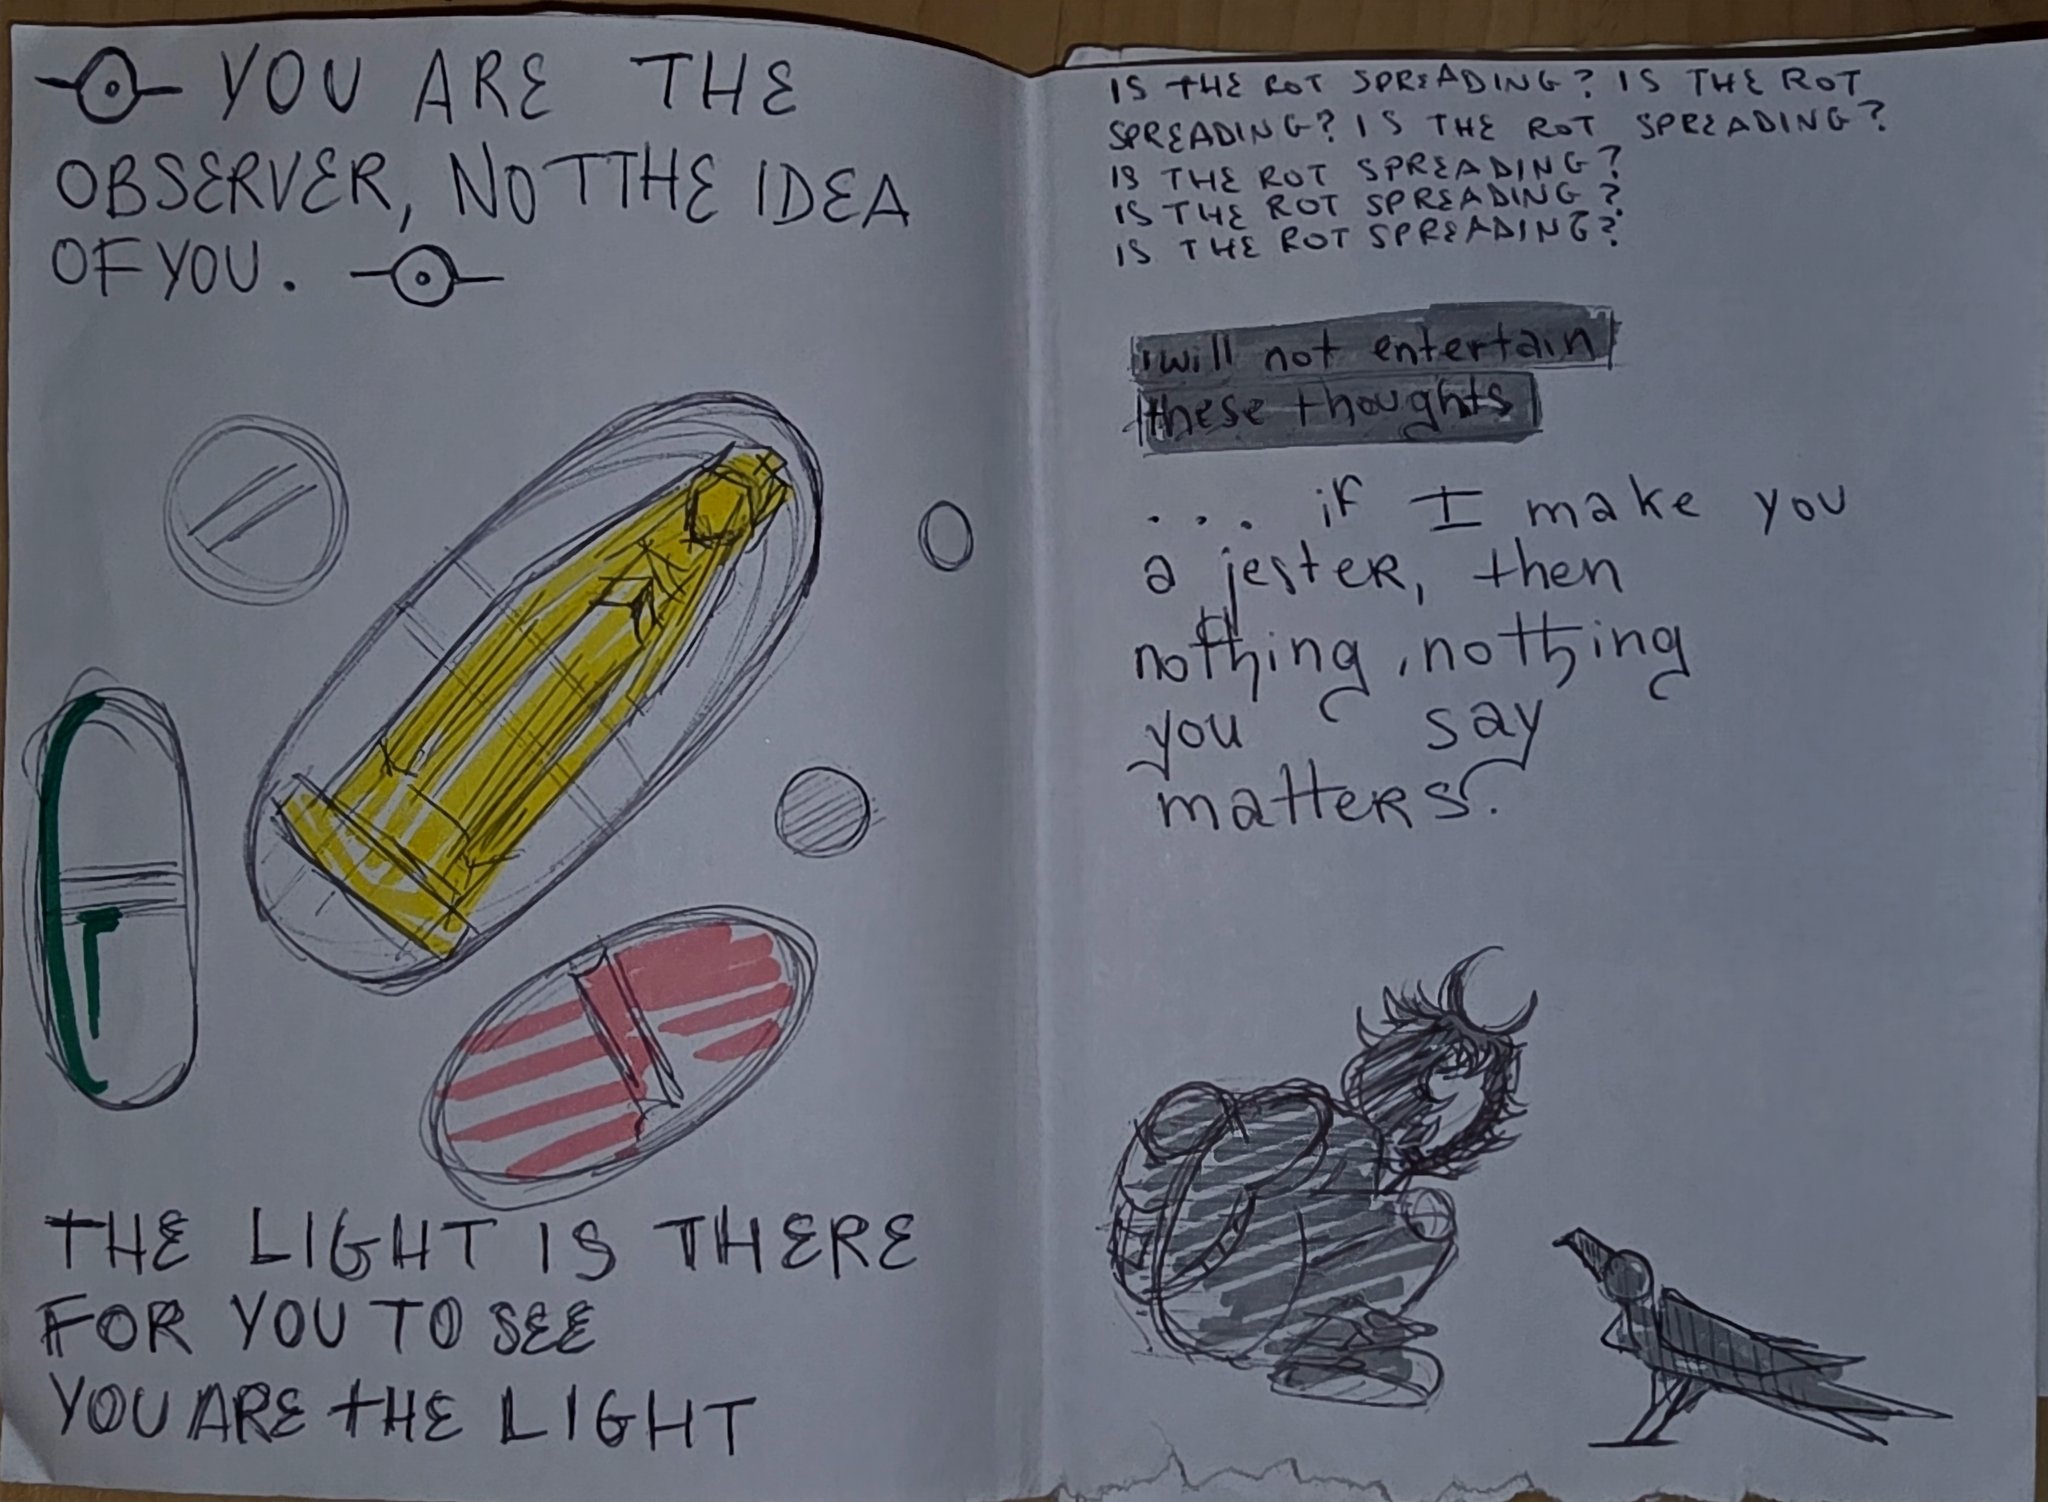 YOU ARE THE
OBSERVER, NOT THE IDEA
OF YOU.
THE LIGHT IS THERE
FOR YOU TO SEE
YOU ARE THE LIGHT
IS THE ROT SPREADING? IS THE ROT
SPREADING? IS THE ROT SPREADING?
IS THE ROT SPREADING?
IS THE ROT SPREADING?
IS THE ROT SPREADING?
i will not entertain
these thoughts
... if I make you
a jester, then
nothing, nothing
you say
matters.